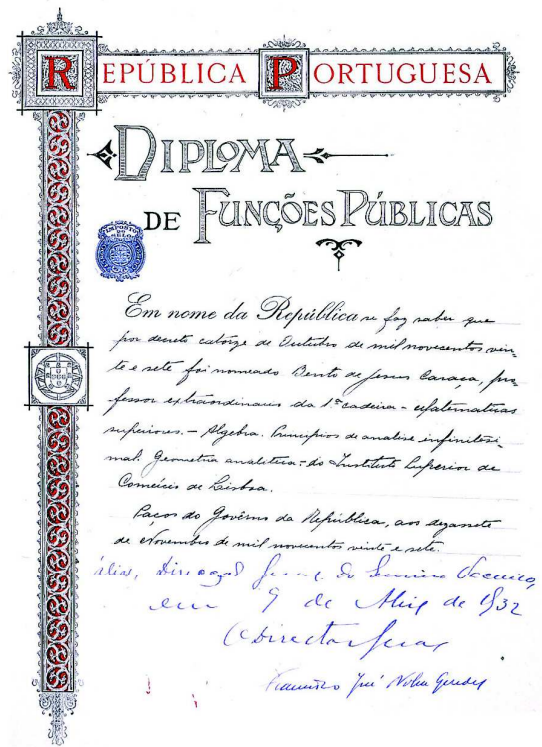 REPÚBLICA PORTUGUESA
DIPLOMA
DE FUNÇÕES PÚBLICAS
IMPOSTO
DO
SELO
Em nome da República se faz saber que
por decreto catorze de Outubro de mil novecentos vin-
te e sete foi nomeado Bento de Jesus Caraça, pro
fessor extraordinario da 1ª cadeira - Matematicas
superiores. - Algebra. Principios de analise infinitesi-
mal. Geometria analitica - do Instituto Superior de
Comércio de Lisboa.
Paços do Govêrno da República, aos dezassete
de Novembro de mil novecentos vinte e sete.
do Ensino Tecnico,
em 9 de de 1932
O Director Geral
Francisco José